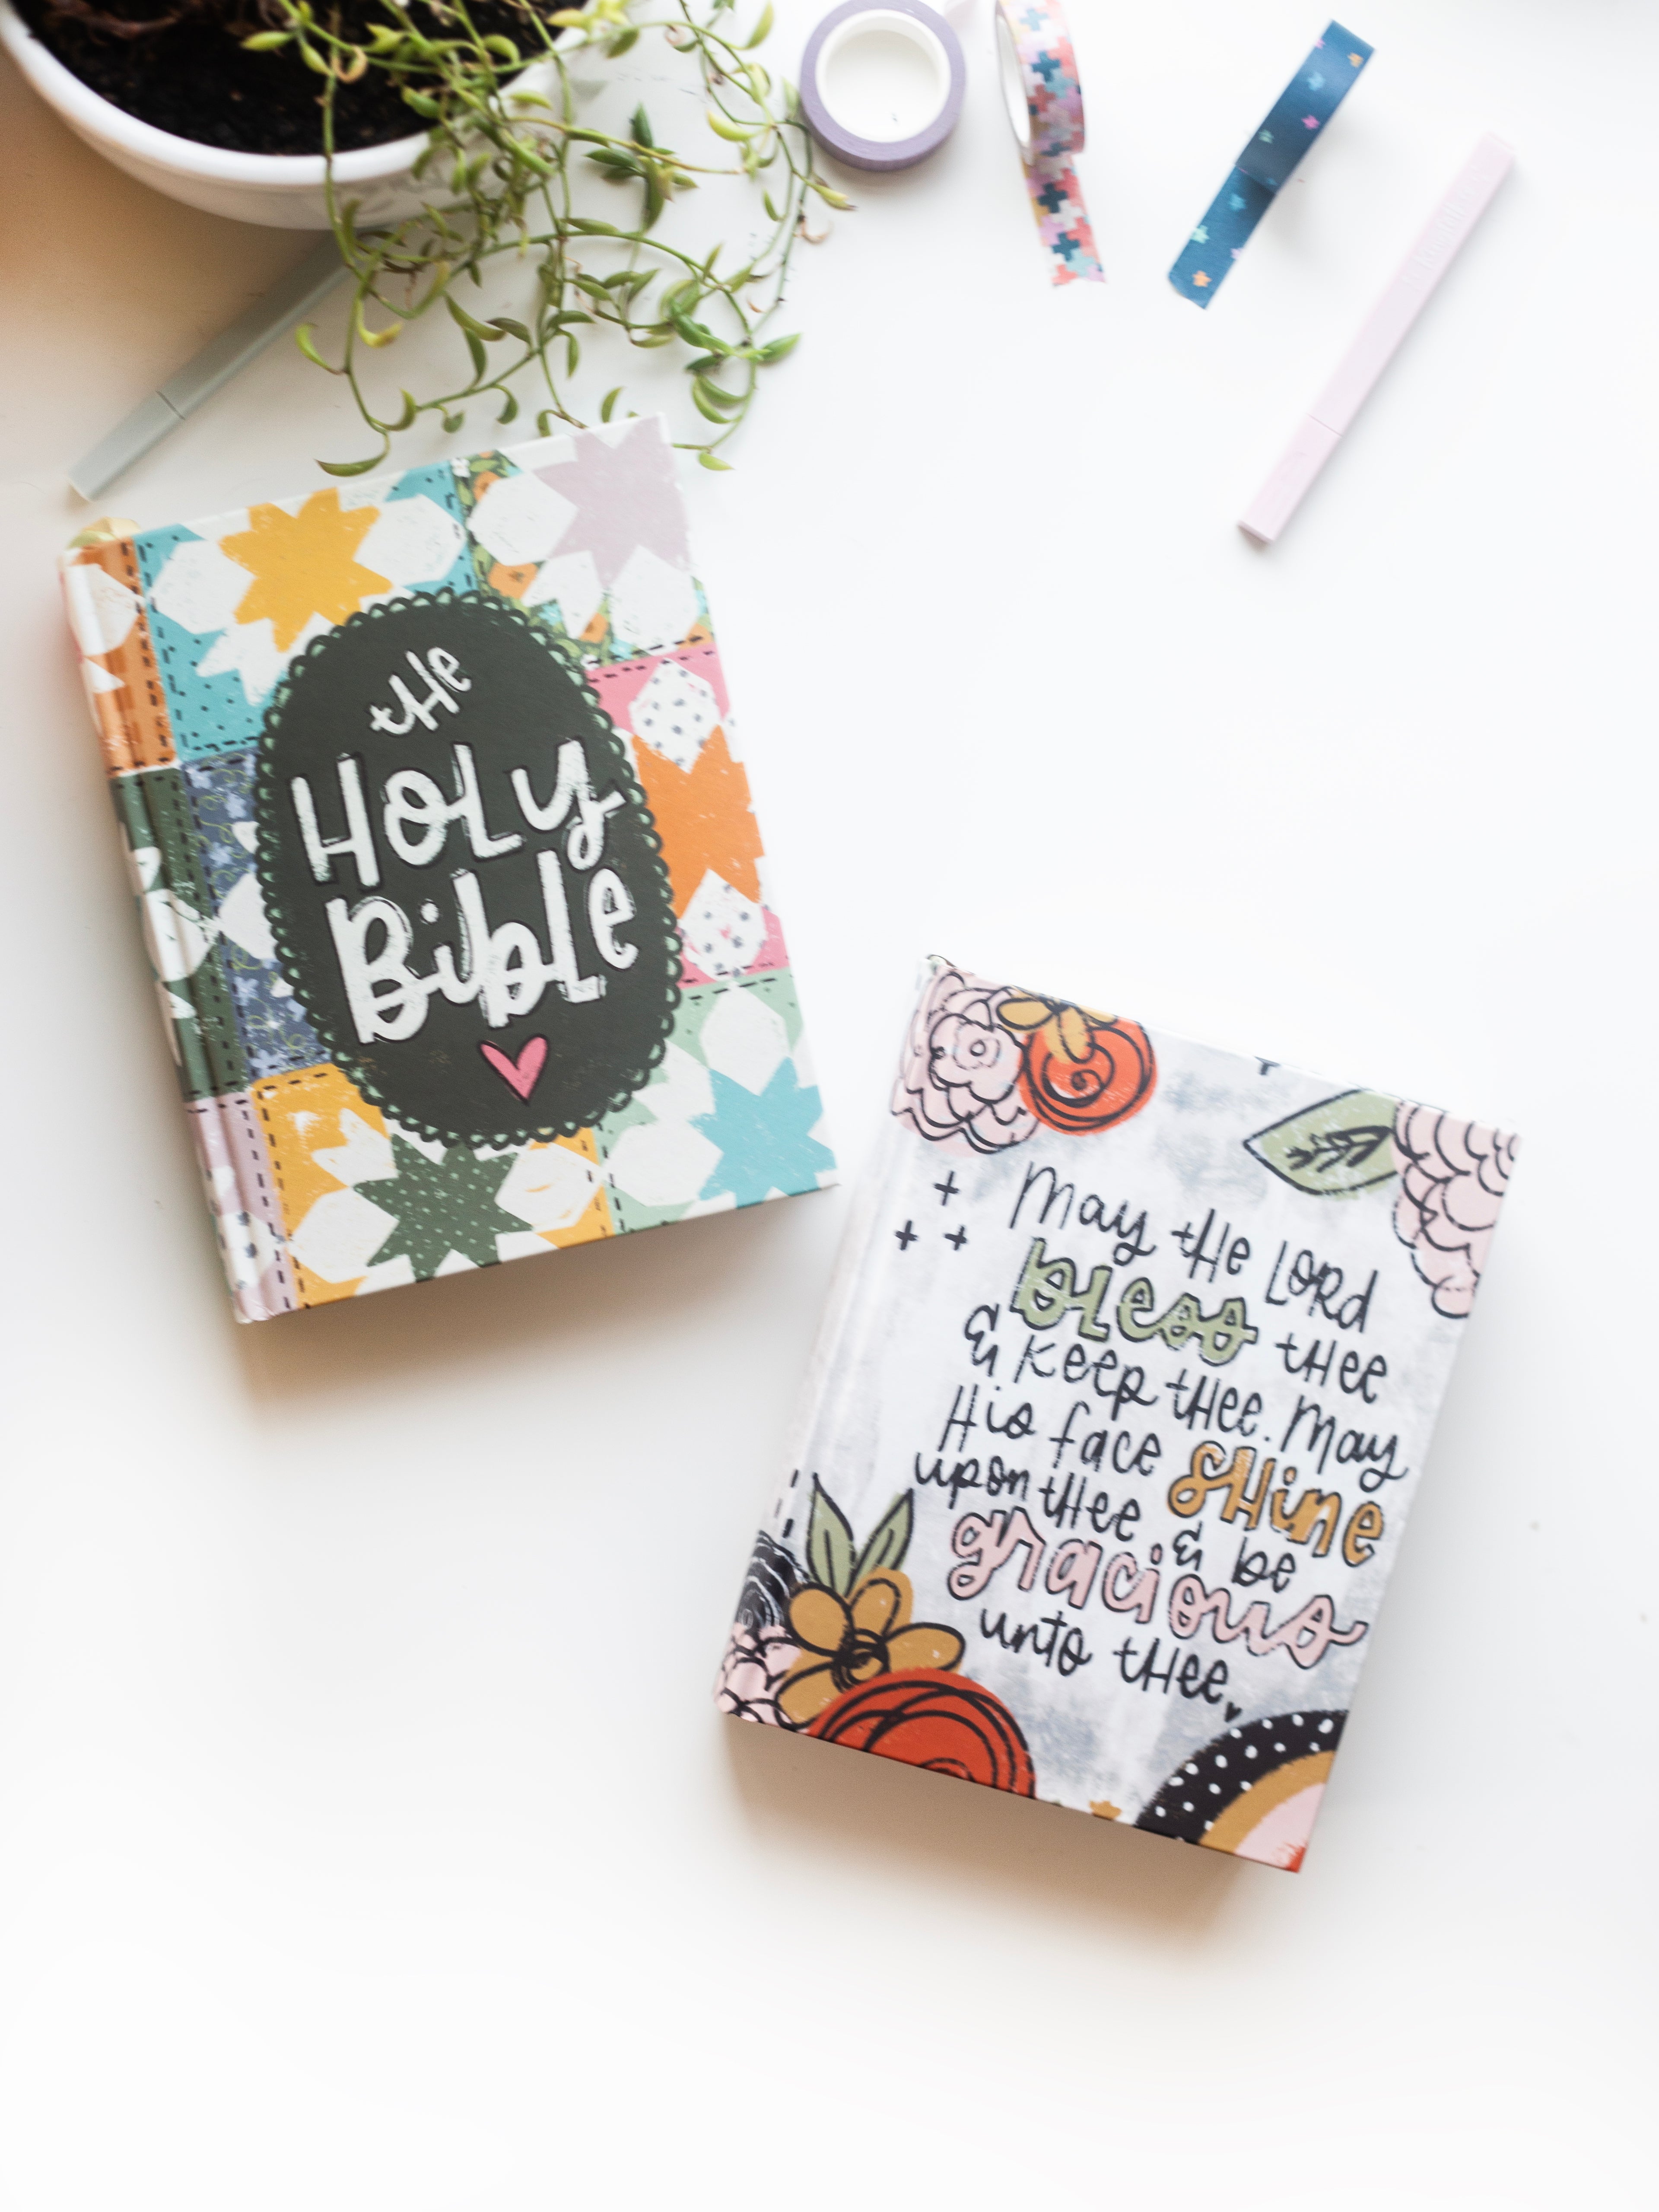 the
Holy
Bible
May the Lord
bless thee
& keep thee. May
His face shine
upon thee & be
gracious
unto thee.